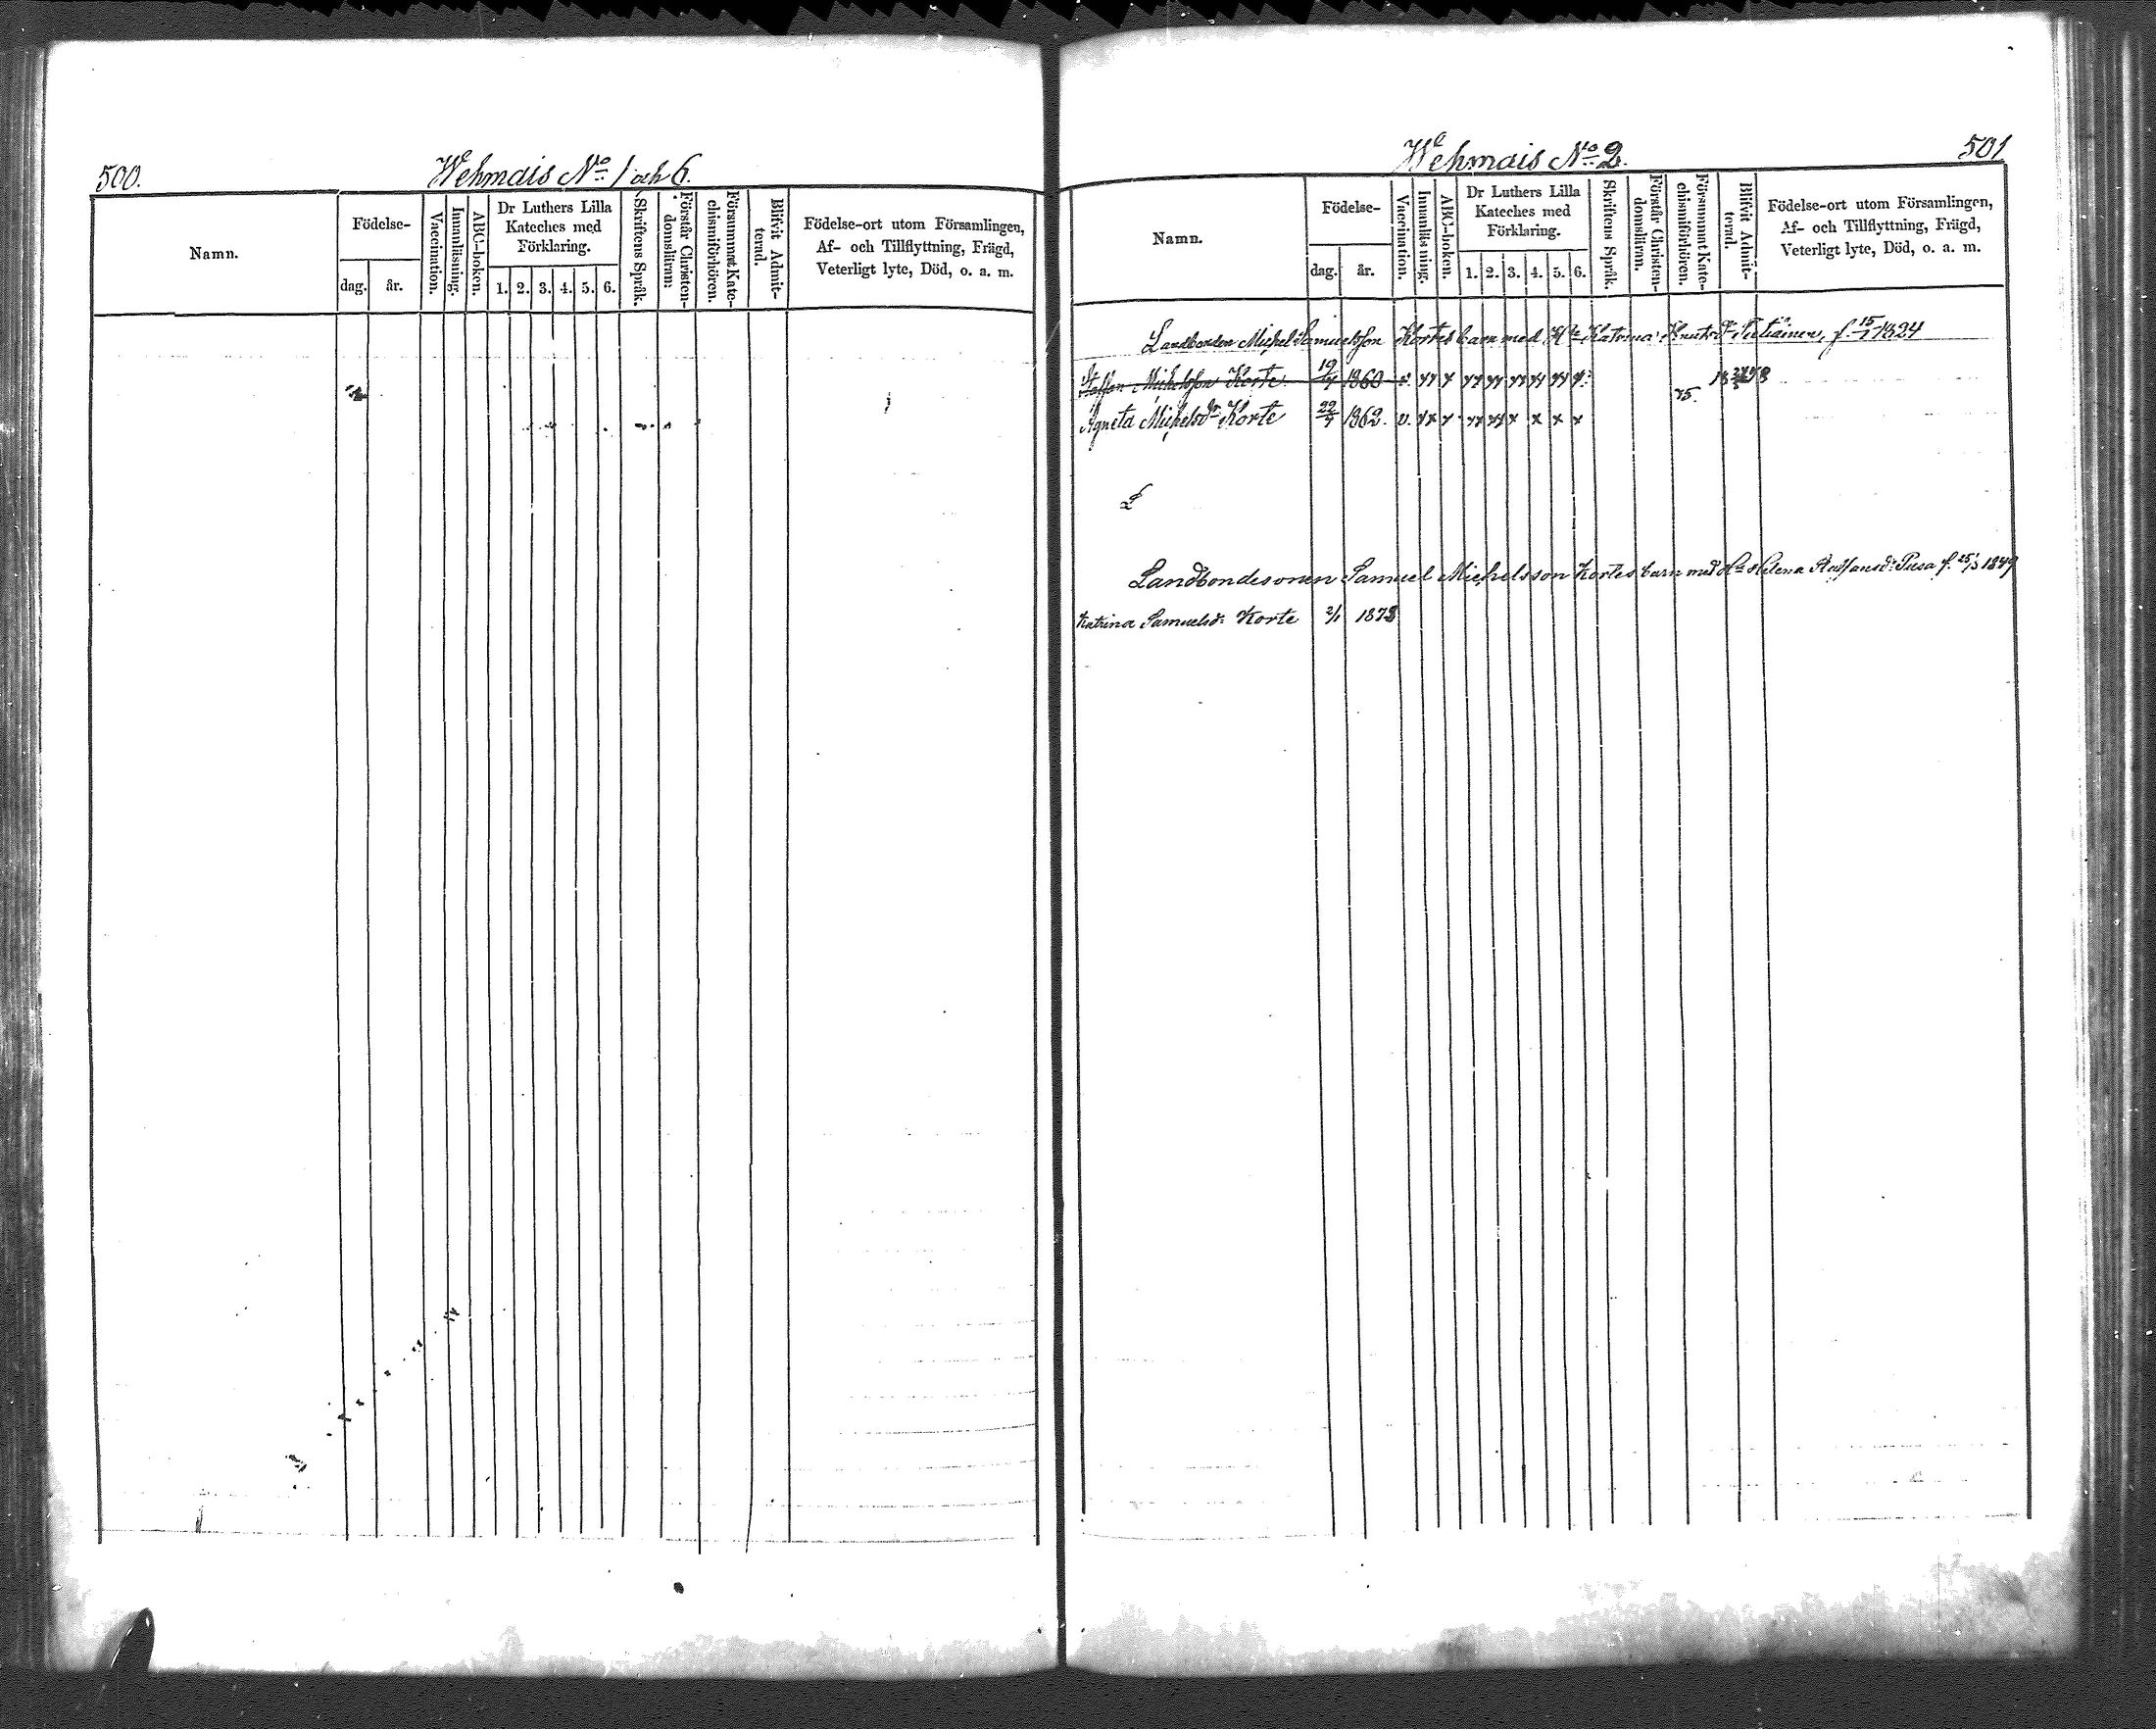 500.
Wehmais No 1 och 6.
Namn.
Födelse-
dag.
år.
Vaccination.
Innanläsning.
ABC-boken.
Dr Luthers Lilla
Kateches med
Förklaring.
1. 2. 3. 4. 5. 6.
Skriftens Språk.
Förstår Christen-
domsläran.
Försummat Kate-
chismiförhören.
Blifvit Admit-
terad.
Födelse-ort utom Församlingen,
Af- och Tillflyttning, Frägd,
Veterligt lyte, Död, o. a. m.
Wehmais No 2.
501
Namn.
Födelse-
dag.
år.
Vaccination.
Innanläsning.
ABC-boken.
Dr Luthers Lilla
Kateches med
Förklaring.
1. 2. 3. 4. 5. 6.
Skriftens Språk.
Förstår Christen-
domsläran.
Försummat Kate-
chismiförhören.
Blifvit Admit-
terad.
Födelse-ort utom Församlingen,
Af- och Tillflyttning, Frägd,
Veterligt lyte, Död, o. a. m.
Landbonden Michel Samuelsson Kortes barn med Katrina f. 15/1 1824
Staffan Michelsson Korte 19/4 1860 v. xx x xx xx xx xx xx x
75.
Agneta Michelsdr Korte 22/4 1862. v. xx x xx xx x x x x
Landbondesonen Samuel Michelsson Kortes barn med Helena Staffansd: Pusa f. 25/3 1849
Katrina Samuelsd: Korte 2/1 1878